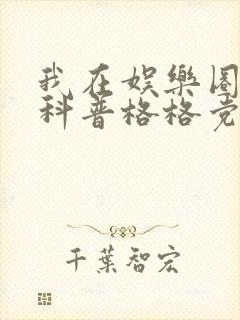 我在娱樂圈
科普格格党
千葉智宏